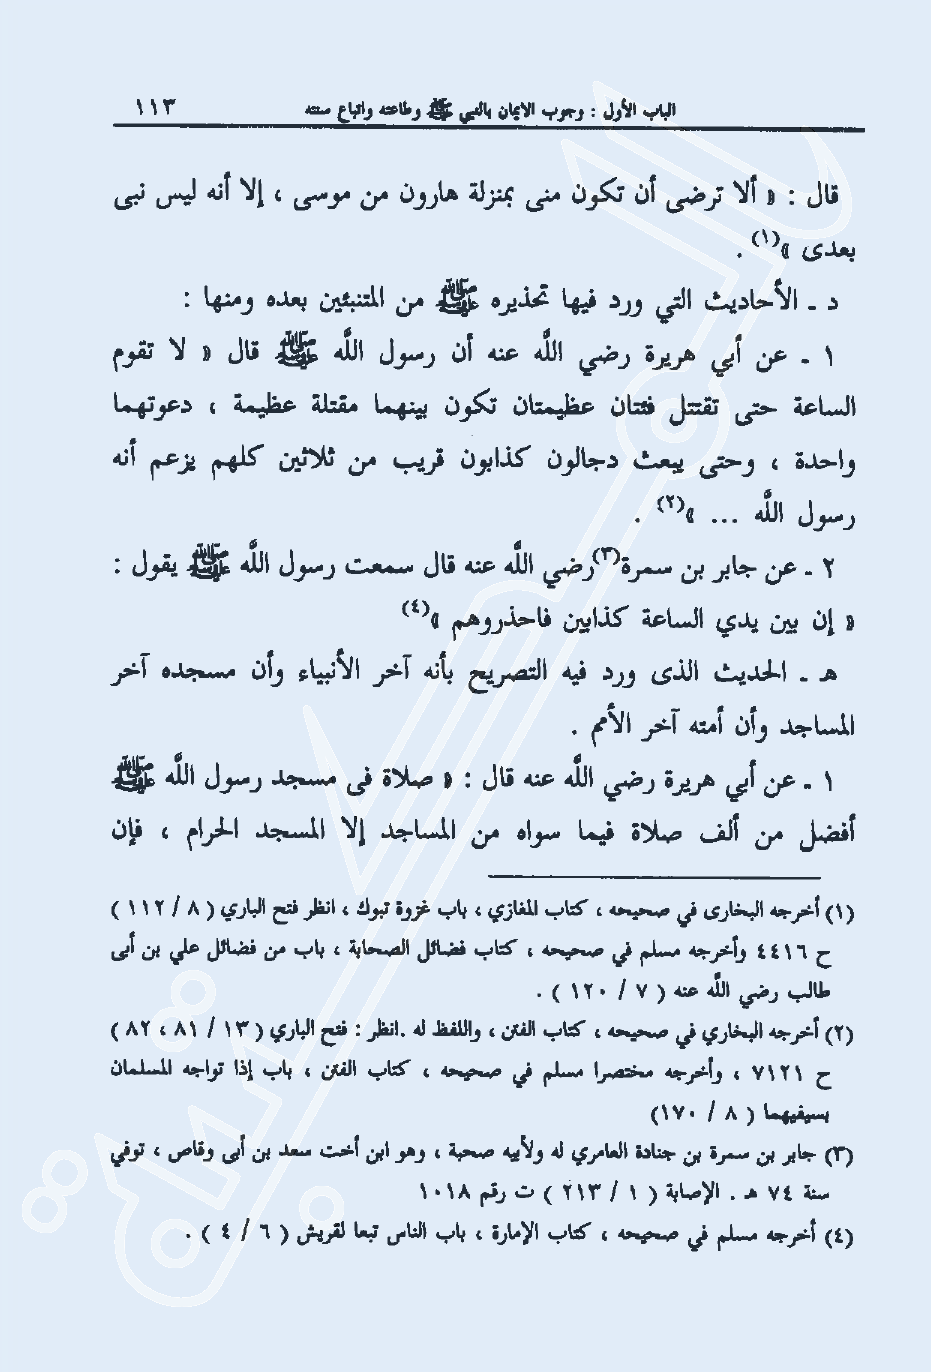 الباب الأول : وجوب الايمان بالنبي ﷺ وطاعته واتباع سنته ١١٣
قال : « ألا ترضى أن تكون منى بمنزلة هارون من موسى ، إلا أنه ليس نبى
بعدى »(١) .
د ـ الأحاديث التي ورد فيها تحذيره ﷺ من المتنبئين بعده ومنها :
١ ـ عن أبي هريرة رضي اللَّه عنه أن رسول اللَّه ﷺ قال « لا تقوم
الساعة حتى تقتتل فئتان عظيمتان تكون بينهما مقتلة عظيمة ، دعوتهما
واحدة ، وحتى يبعث دجالون كذابون قريب من ثلاثين كلهم يزعم أنه
رسول اللَّه ... »(٢) .
٢ ـ عن جابر بن سمرة(٣) رضي اللَّه عنه قال سمعت رسول اللَّه ﷺ يقول :
« إن بين يدي الساعة كذابين فاحذروهم »(٤)
هـ ـ الحديث الذى ورد فيه التصريح بأنه آخر الأنبياء وأن مسجده آخر
المساجد وأن أمته آخر الأمم .
١ ـ عن أبي هريرة رضي اللَّه عنه قال : « صلاة فى مسجد رسول اللَّه ﷺ
أفضل من ألف صلاة فيما سواه من المساجد إلا المسجد الحرام ، فإن
(١) أخرجه البخارى في صحيحه ، كتاب المغازي ، باب غزوة تبوك ، انظر فتح الباري ( ٨ / ١١٢ )
ح ٤٤١٦ وأخرجه مسلم في صحيحه ، كتاب فضائل الصحابة ، باب من فضائل علي بن أبى
طالب رضي اللَّه عنه ( ٧ / ١٢٠ ) .
(٢) أخرجه البخاري في صحيحه ، كتاب الفتن ، واللفظ له .انظر : فتح الباري ( ١٣ / ٨١ ، ٨٢ )
ح ٧١٢١ ، وأخرجه مختصرا مسلم في صحيحه ، كتاب الفتن ، باب إذا تواجه المسلمان
بسيفيهما ( ٨ / ١٧٠ )
(٣) جابر بن سمرة بن جنادة العامري له ولأبيه صحبة ، وهو ابن أخت سعد بن أبى وقاص ، توفي
سنة ٧٤ هـ . الإصابة ( ١ / ٢١٣ ) ت رقم ١٠١٨
(٤) أخرجه مسلم في صحيحه ، كتاب الإمارة ، باب الناس تبعا لقريش ( ٦ / ٤ ) .